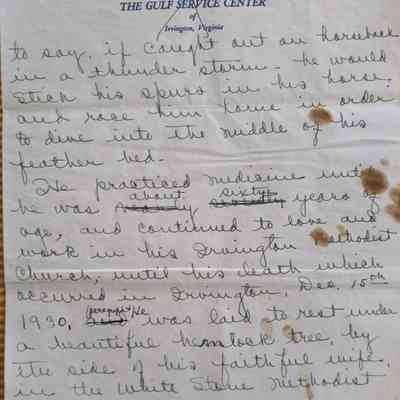 THE GULF SERVICE CENTER
of
Irvington, Virginia
to say, if caught out on horseback
in a thunder storm - he would
stick his spurs in his horse,
and race him home in order
to dive into the middle of his
feather bed.
He practiced medicine until
he was about sixty years of
age, and continued to love and
work in his Irvington Methodist
Church, until his death which
occurred in Irvington, Dec. 15th
1930, paragraph He was laid to rest under
a beautiful hemlock tree, by
the side of his faithful wife,
in the White Stone Methodist